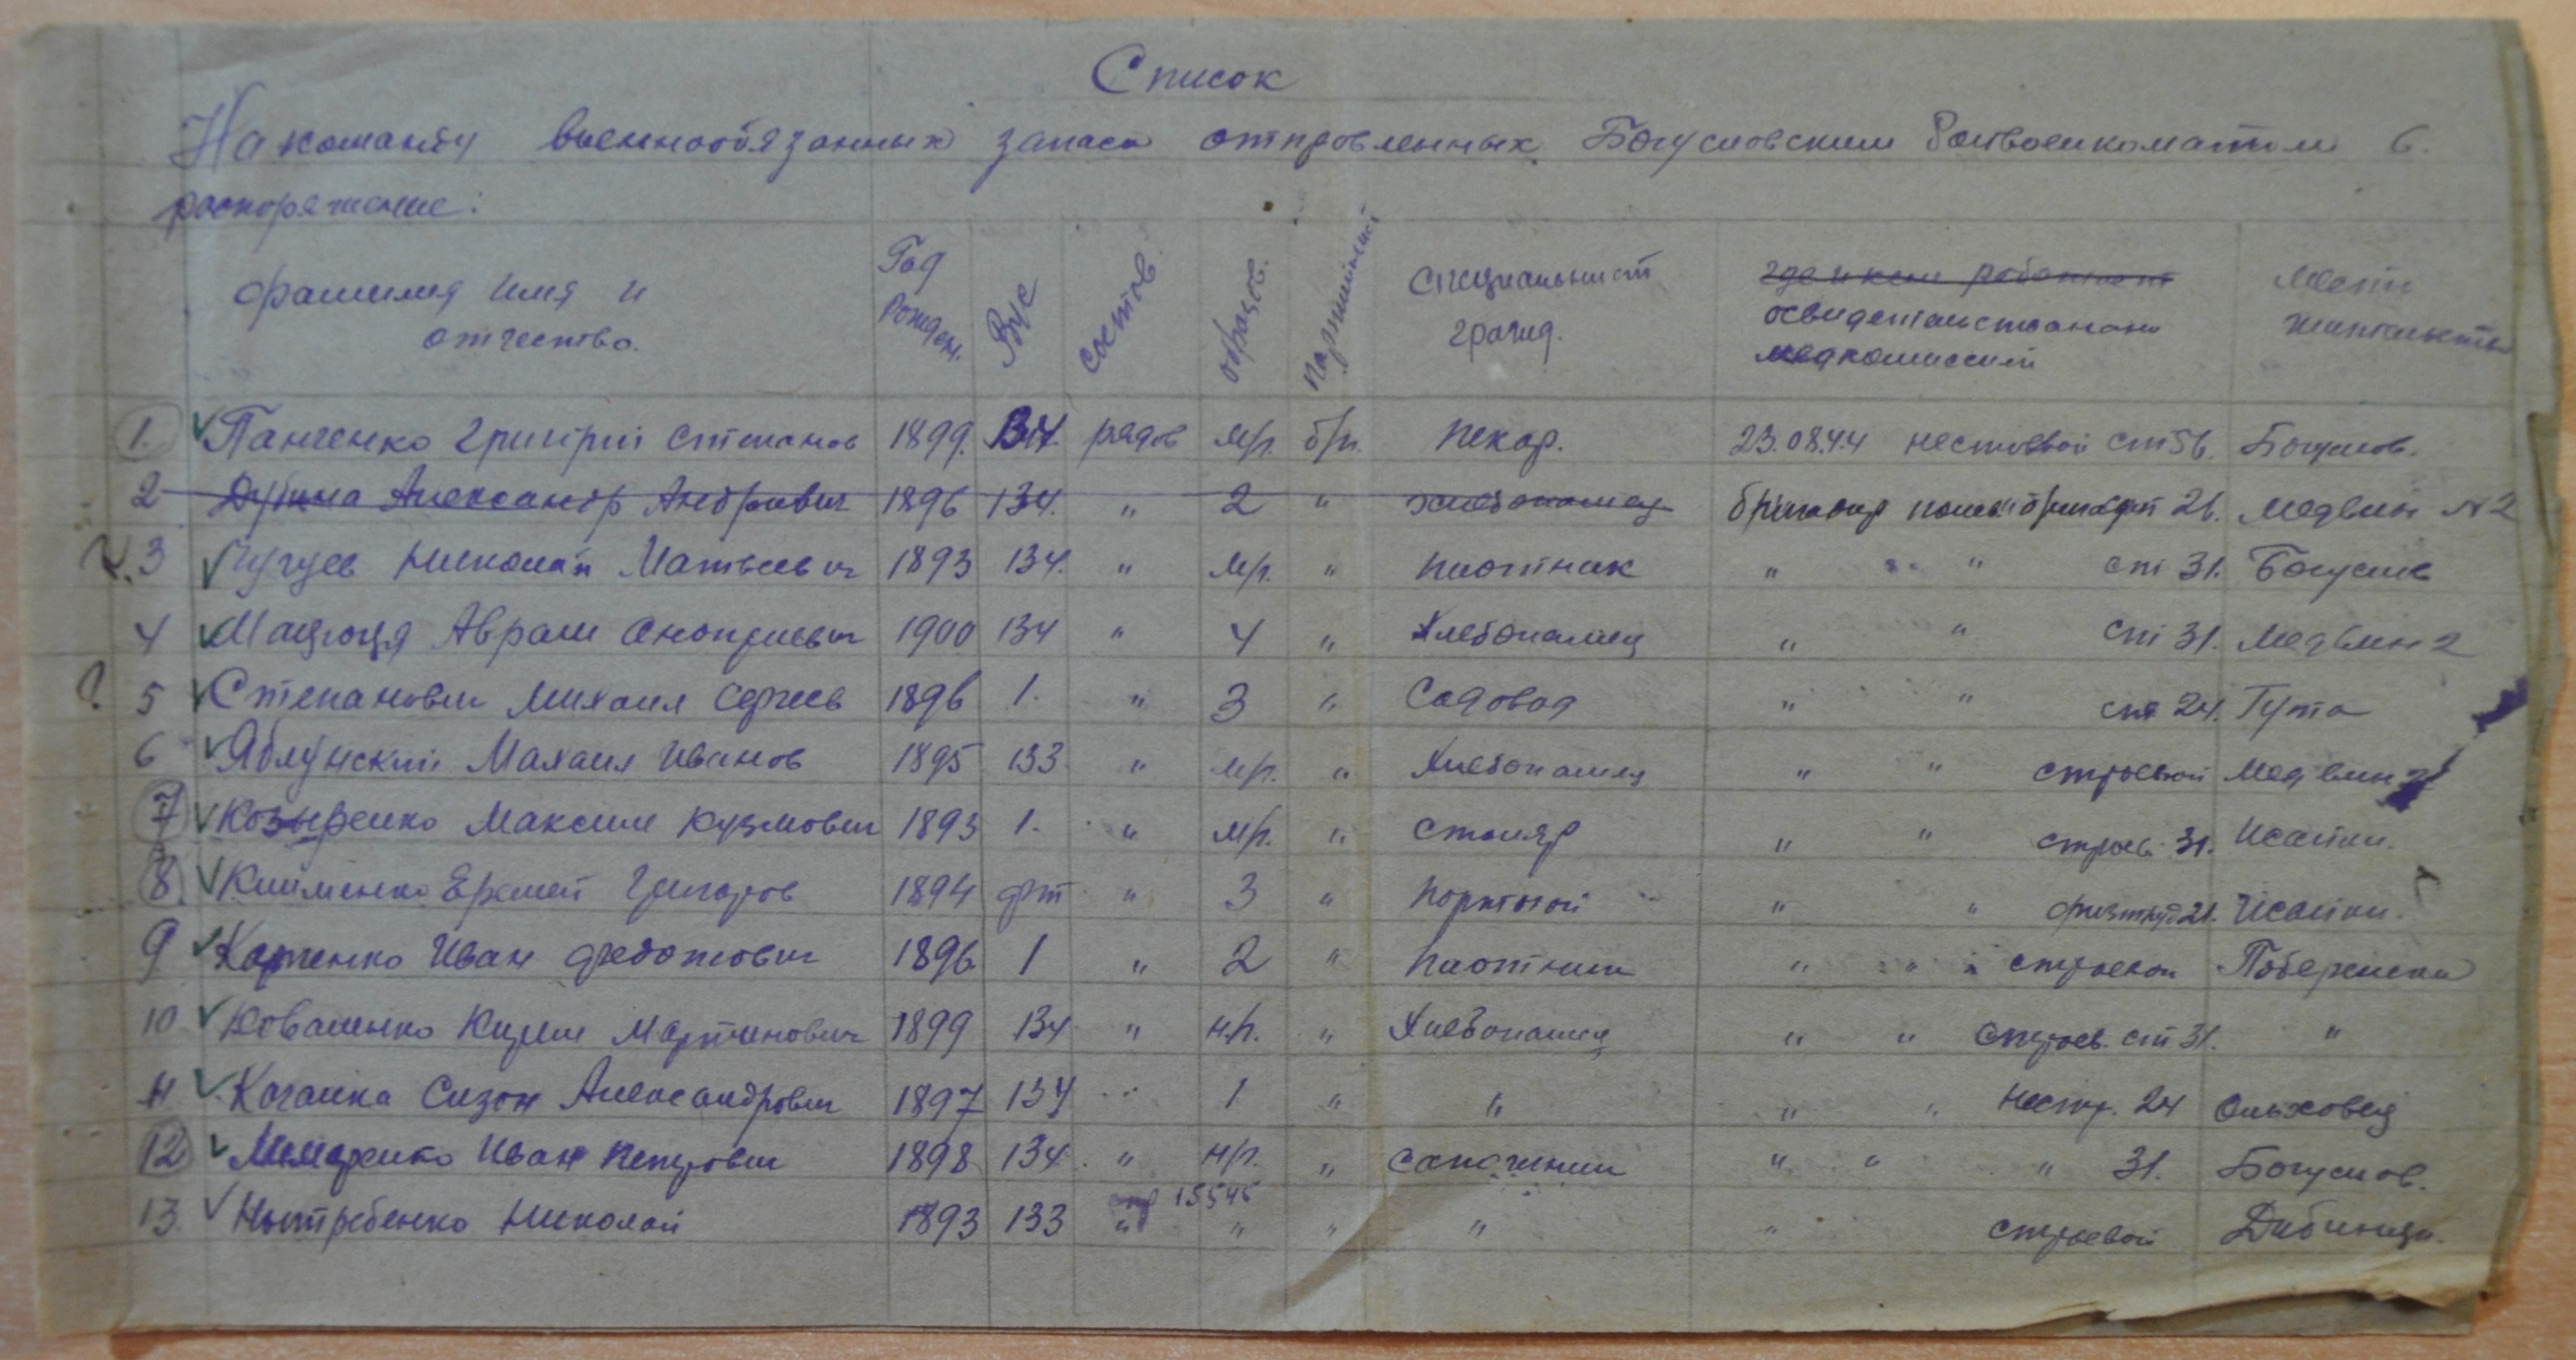 Список
На команду военнообязанных запаса отправленных Богуславским Райвоенкоматом в
распоряжение:
фамилия имя и отчество. Год рожден. Вус состав. образов. партийност специальност гражд. где и кем работает освидетельствован медкомиссией место жительства
1. Панченко Григорий Степанов 1899. 134. рядов м/г. б/п. пекар. 23.08.44 нестроевой ст 36. Богуслов.
2 Дубина Александр Андреевич 1896 134. " 2 " хлебопашец 26. Медвин №2
3 Чугуев Николай Матвеевич 1893 134. " м/г. " плотник " " ст 31. Богуслав
4 Мацюця Аврам Оноприевич 1900 134 " 4 " Хлебопашец " " ст 31. Медвин 2
? 5 Степанович Михаил Сергеев 1896 1. " 3 " Садовод " " ст 24. Гута
6 Яблунский Махаил Иванов 1895 133 " м/г. " Хлебопашец " " строевой Медвин 2
7 Козыренко Максим Кузмович 1893 1. " м/г. " столяр " " строев. 31. Исайки.
8. Клименко Еремей Григоров 1894 фт " 3 " портной " " физтруд 21. Исайки.
9 Харченко Иван Федотович 1896 1 " 2 " плотник " " строевой Побережка
10 Коваленко Кирил Мартинович 1899 134 " н/г. " Хлебопашец " " строев. ст 31. "
11. Качалка Сизон Александрович 1897 134 " 1 " " " " нестр. 24 Ольховец
12 Иван Петрович 1898 134. " н/г. " сапожник " " " 31. Богуслов.
15545
13. Ныстребенко Николай 1893 133 " " " " " строевой Дибинци.